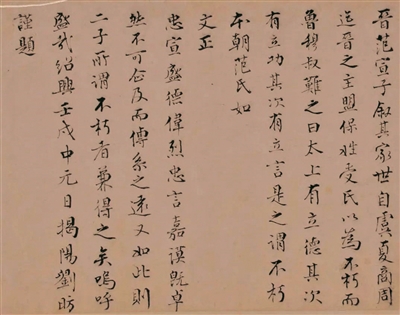 晉范宣子敘其家世自虞夏商周
迄晉之主盟保姓受氏以為不朽而
魯穆叔難之曰太上有立德其次
有立功其次有立言是之謂不朽
本朝范氏如
文正
忠宣盛德偉烈忠言嘉謨既卓
然不可企及而傳系之遠又如此則
二子所謂不朽者兼得之矣嗚呼
盛哉紹興壬戌中元日揭陽劉昉
謹題